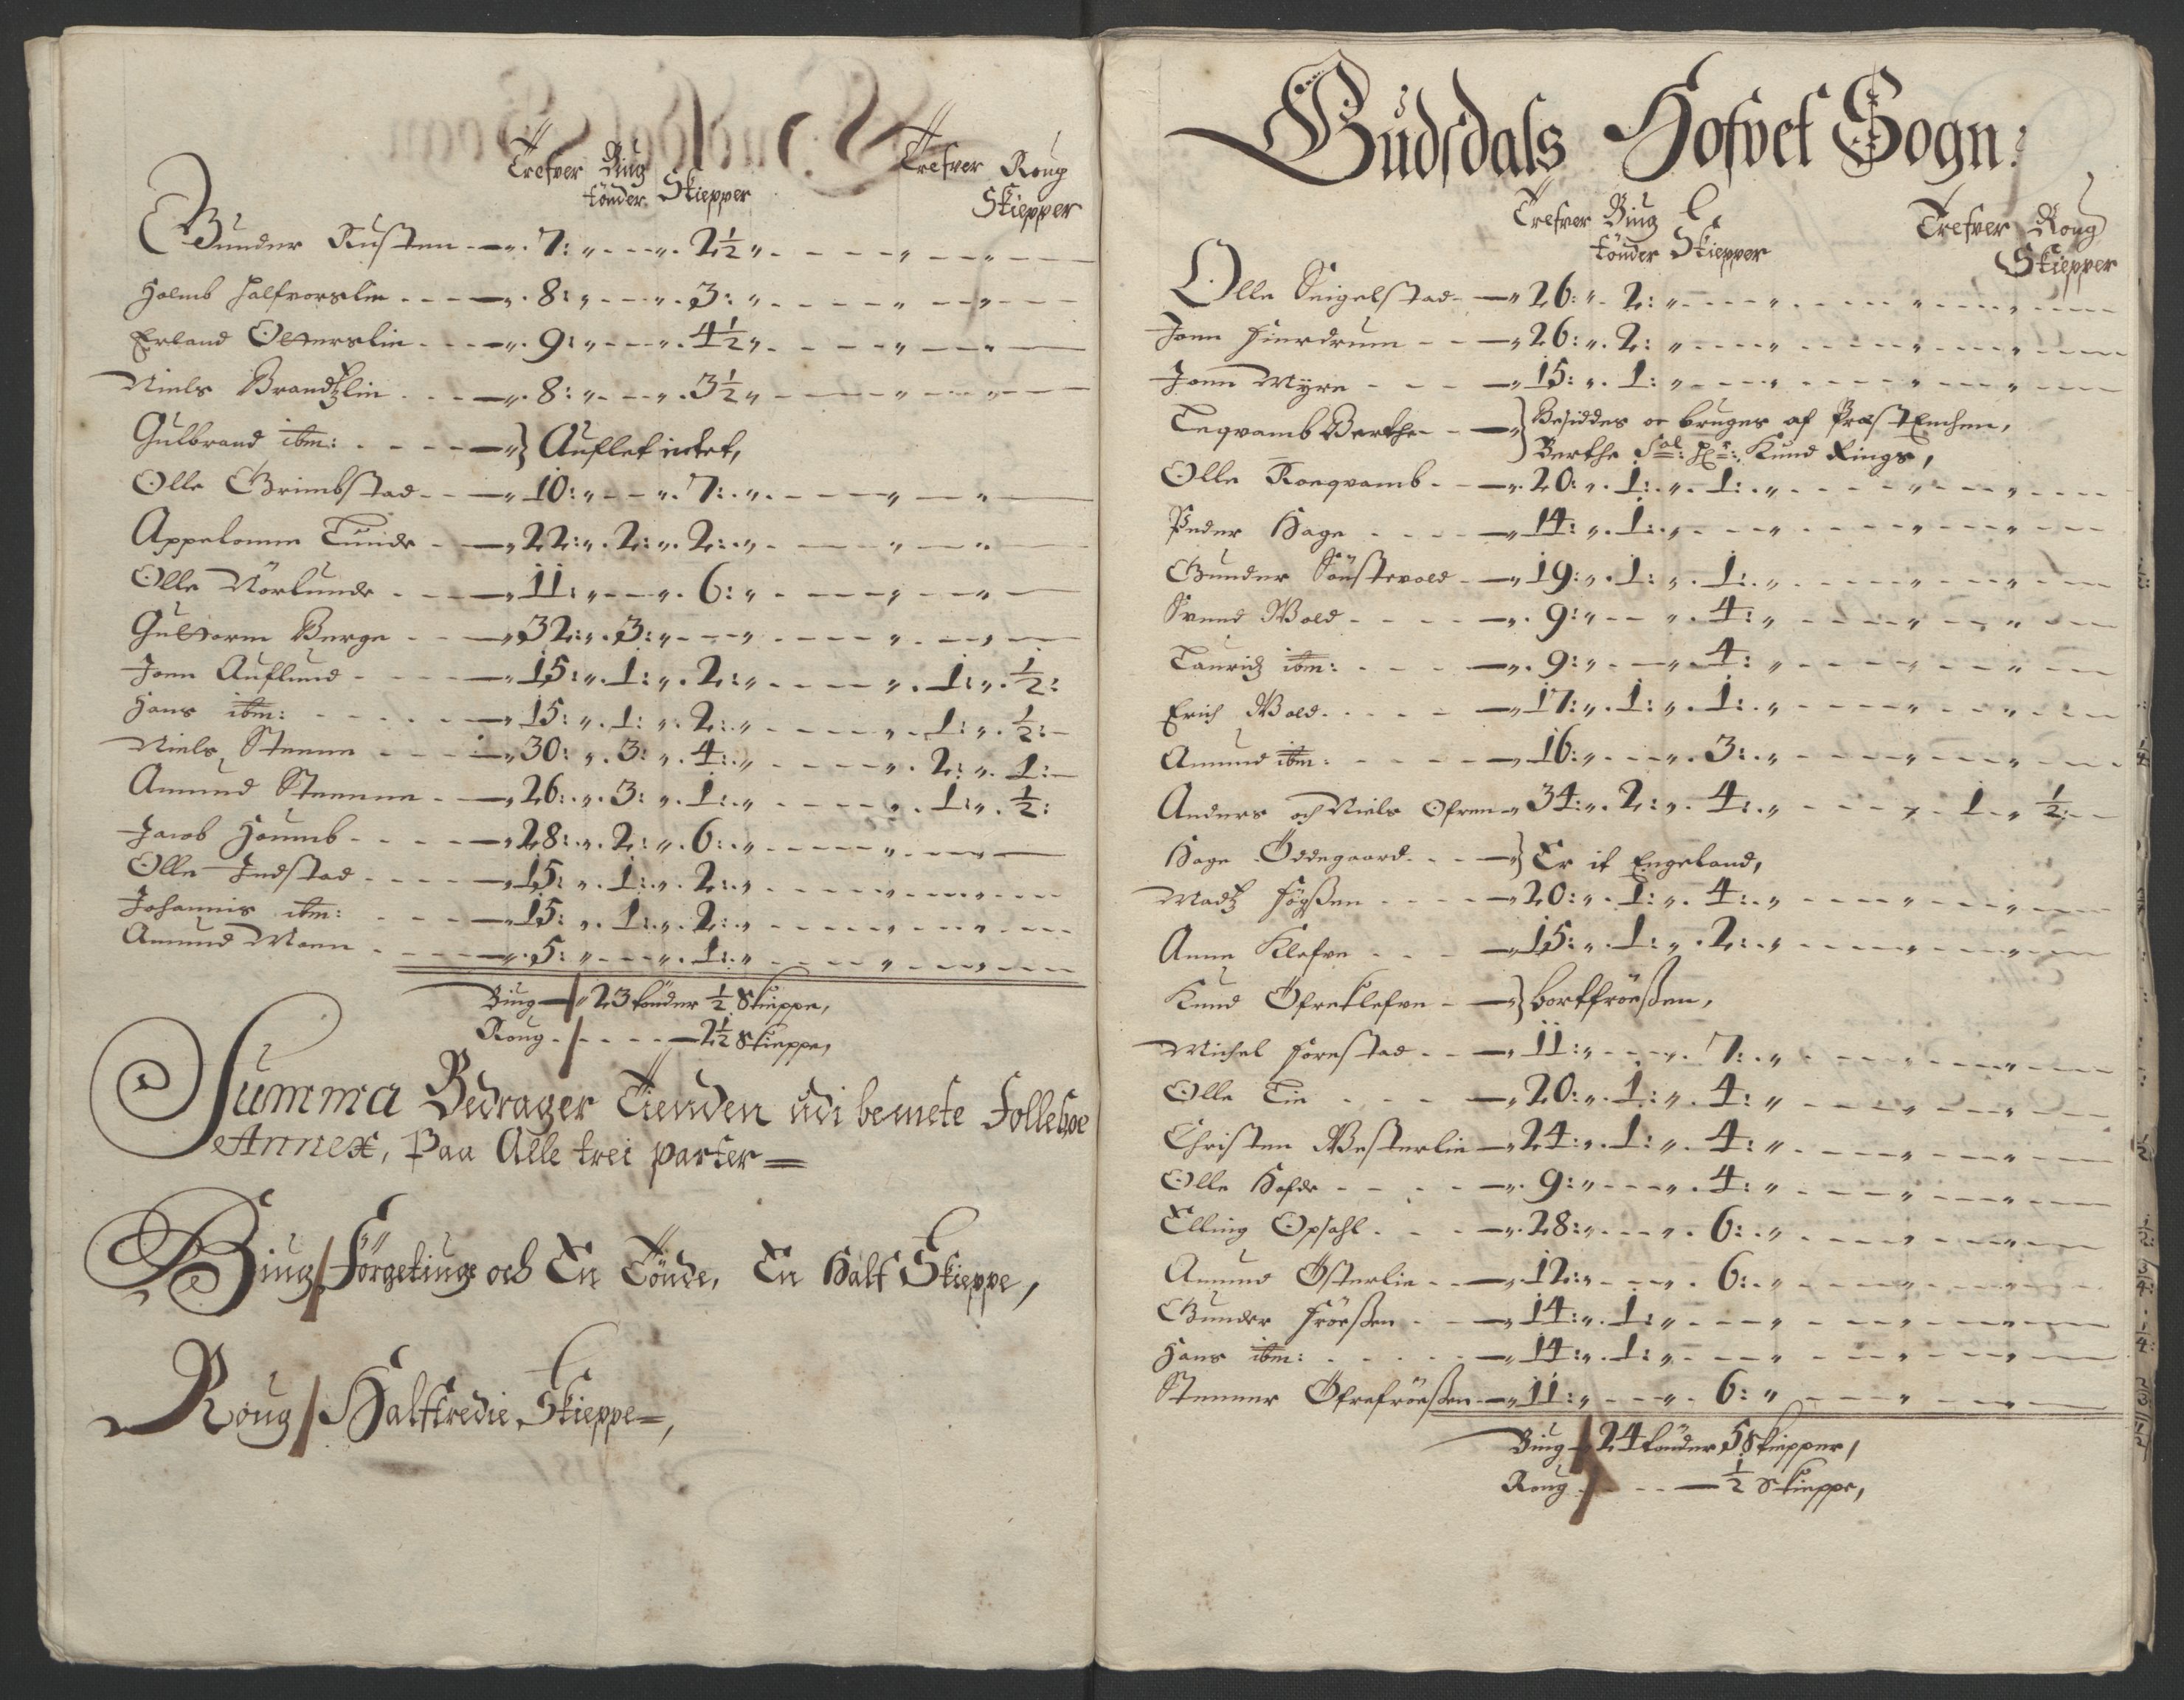 Trefver Biug Trefver Roug
tönder Skiepper Skiepper
Gunder Rusten - - 7: „ - - „ 2½ „ - - - „ - - „ - -
Holmb Halfvorslie - - - 8: „ - - „ 3: „ - - - „ - - „ - -
Erland Ollerslie - - - 9: „ - - „ 4½ „ - - - „ - - „ - -
Niels Brandtzlie - - - 8: „ - - „ 3½ „ - - - „ - - „ - -
Gulbrand ibm: - - - - „} Auflet intet,
Olle Grimbstad - - „ 10: „ - - „ 7: „ - - - „ - - „ - -
Appelonne Tünde - - „ 22: „ 2: „ 2: „ - - - „ - - „ - -
Olle Nörlunde - - - „ 11: „ - - „ 6: „ - - - „ - - „ - -
Guttorm Berge - - „ 32: „ 3: „ - - „ - - - „ - - „ - -
Joen Auflund - - - „ 15: „ 1: „ 2: „ - - - „ 1: „ ½:
Hans ibm: - - - - „ 15: „ 1: „ 2: „ - - - „ 1: „ ½: -
Niels Steenne - - - „ 30: „ 3: „ 4: „ - - - „ 2: „ 1: -
Amund Steenne - - „ 26: „ 3: „ 1: „ - - - „ 1: „ ½:
Jacob Houmb - - - „ 28: „ 2: „ 6: „ - - - „ - - „ - -
Olle Jndstad - - - - „ 15: „ 1: „ 2: „ - - - „ - - „ - -
Johannis ibm: - - - „ 15: „ 1: „ 2: „ - - - „ - - „ - -
Amund Moen - - - „ 5: „ - - „ 1: „ - - - „ - - „ - -
Biug - „ 23 tönder ½ Skieppe,
Roug - - - - 2½ Skieppe,
Summa Bedrager Tienden udi bemete Follebue
Annex, Paa Alle trei parter =
Biug / Förgetiuge och En Tönde, En Half Skieppe,
Roug / Halftredie Skieppe =,
Gudsdals Hofvet Sogn:
Trefver Biug Trefver Roug
tönder Skiepper Skiepper
Olle Seigelstad - - „ 26: „ 2: „ - - - „ - - - „ - - „ - -
Joen Fierdrum - - - „ 26: „ 2: „ - - - „ - - - „ - - „ - -
Joen Myre - - - - „ 15: „ 1: „ - - - „ - - - „ - - „ - -
Teqvamb Berthe - - „} Besiddes oc bruges af PræstEnchen,
Berthe Sal: Hr: Kund Rings,
Olle Roeqvamb - - „ 20: „ 1: „ 1: „ - - - „ - - „ - -
Peder Hage - - - - „ 14: „ 1: „ - - - „ - - - „ - - „ - -
Gunder Sönstevold - „ 19: „ 1: „ 1: „ - - - „ - - „ - -
Svend Wold - - - - „ 9: „ - - „ 4: „ - - - „ - - „ - -
Lauridz ibm: - - - „ 9: „ - - „ 4: „ - - - „ - - „ - -
Erich Wold - - - - „ 17: „ 1: „ 1: „ - - - „ - - „ - -
Amund ibm: - - - „ 16: „ - - „ 3: „ - - - „ - - „ - -
Anders och Niels Ofren „ 34: „ 2: „ 4: „ - - - „ 1 „ ½: -
Hage Öddegaard - - „} Er it Engeland,
Madtz Fögßen - - - „ 20: „ 1: „ 4: „ - - - „ - - „ - -
Anne Klefve - - - „ 15: „ 1: „ 2: „ - - - „ - - „ - -
Kund Öfreklefve - - „} bortfröeßen,
Michel Forestad - - „ 11: „ - - „ 7: „ - - - „ - - „ - -
Olle Lie - - - - „ 20: „ 1: „ 4: „ - - - „ - - „ - -
Christen Westerlie - „ 24: „ 1: „ 4: „ - - - „ - - „ - -
Olle Hofde - - - - „ 9: „ - - „ 4: „ - - - „ - - „ - -
Elling Opsahl - - - „ 28: „ - - „ 6: „ - - - „ - - „ - -
Amund Österlie - - „ 12: „ - - „ 6: „ - - - „ - - „ - -
Gunder Fröeßen - - „ 14: „ 1: „ - - - „ - - - „ - - „ - -
Hans ibm: - - - - „ 14: „ 1: „ - - - „ - - - „ - - „ - -
Steener Öfrefröeßen - „ 11: „ - - „ 6: „ - - - „ - - „ - -
Biug - 24 tönder 5 Skiepper,
Roug - - - - ½ Skieppe,